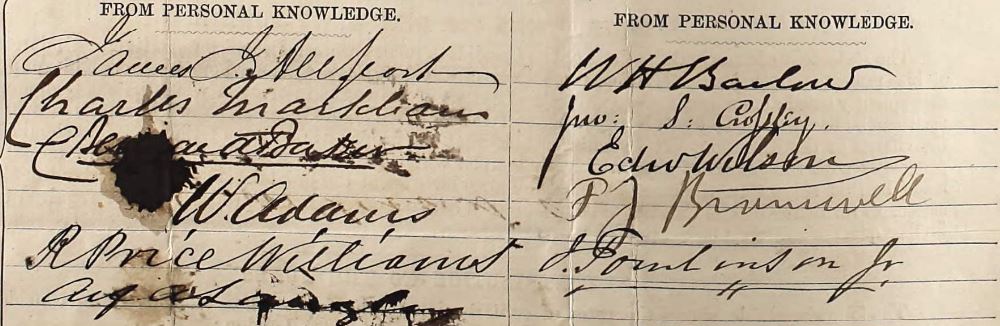 FROM PERSONAL KNOWLEDGE.
James J. Allport
Charles Markham
W. Adams
R Price Williams
FROM PERSONAL KNOWLEDGE.
W H Barlow
Jno: S: Crossley.
Edw Wilson
F J Bramwell
J. Tomlinson Jr.